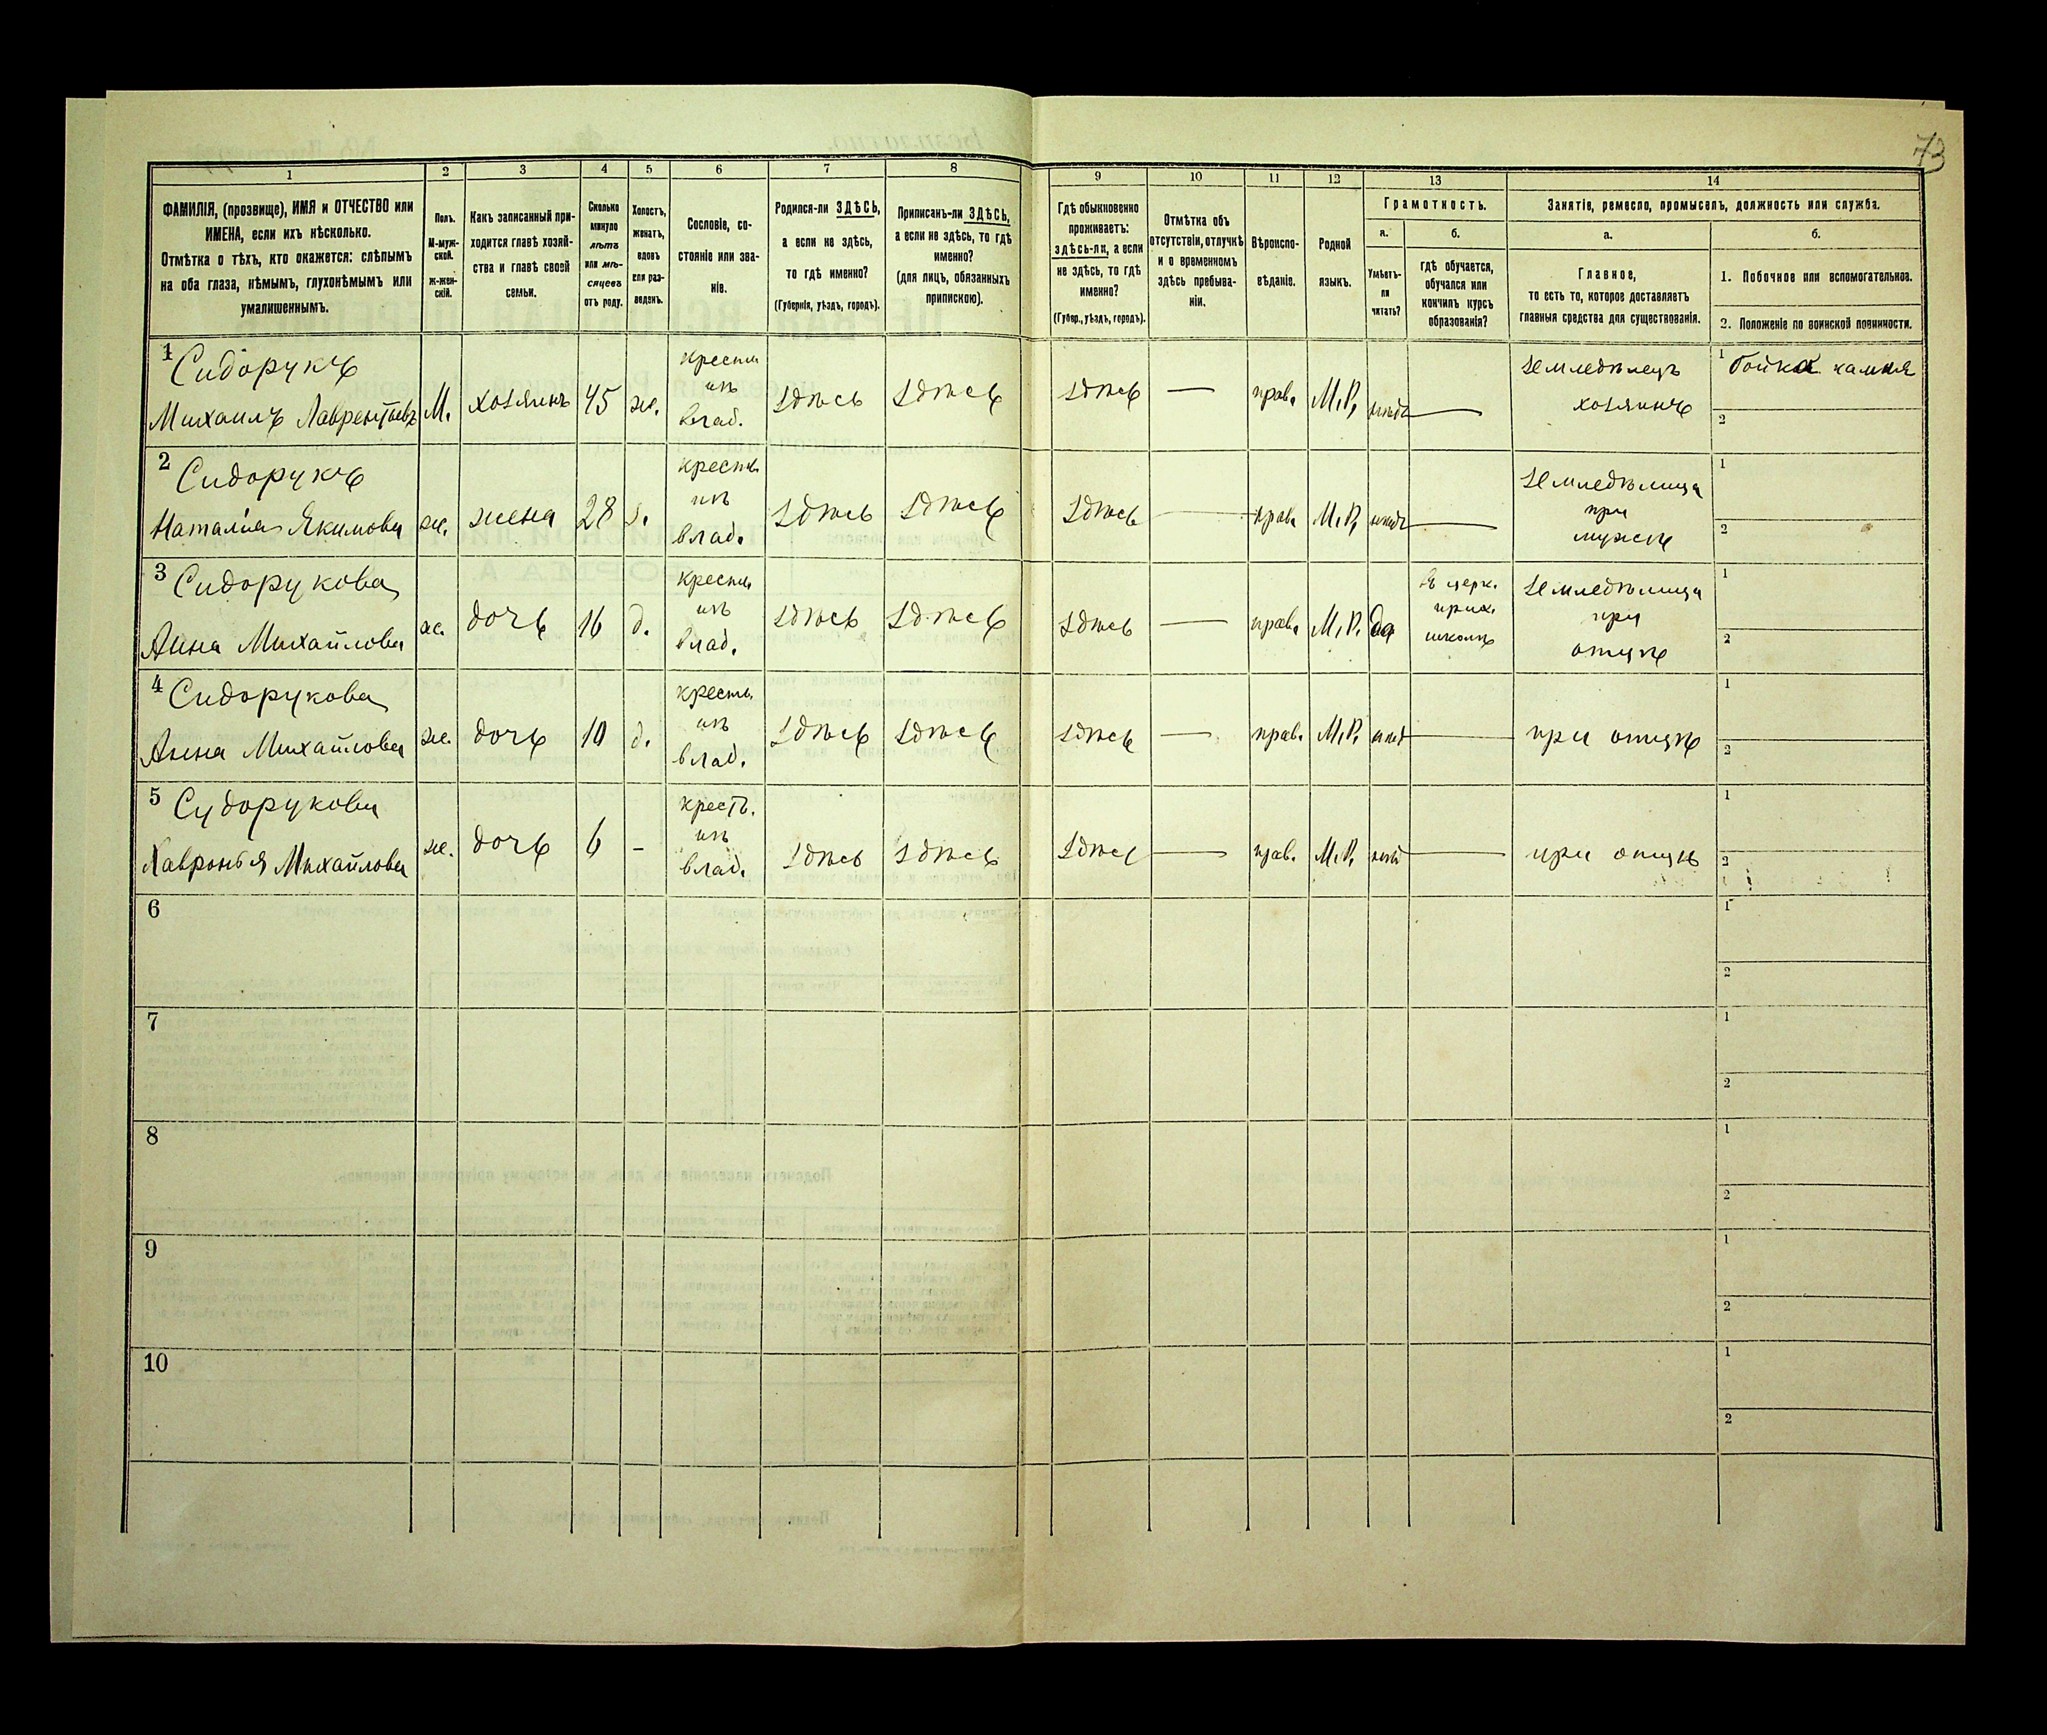 73
1
2
3
4
5
6
7
8
9
10
11
12
13
14
ФАМИЛІЯ, (прозвище), ИМЯ и ОТЧЕСТВО или
ИМЕНА, если ихъ нѣсколько.
Отмѣтка о тѣхъ, кто окажется: слѣпымъ
на оба глаза, нѣмымъ, глухонѣмымъ или
умалишеннымъ.
Полъ.
М-муж-
ской.
ж-жен-
скій.
Какъ записанный при-
ходится главѣ хозяй-
ства и главѣ своей
семьи.
Сколько
минуло
лѣтъ
или мѣ-
сяцевъ
отъ роду.
Холостъ,
женатъ,
вдовъ
или раз-
веденъ.
Сословіе, со-
стояніе или зва-
ніе.
Родился-ли ЗДѢСЬ,
а если не здѣсь,
то гдѣ именно?
(Губернія, уѣздъ, городъ).
Приписанъ-ли ЗДѢСЬ,
а если не здѣсь, то гдѣ
именно?
(для лицъ, обязанныхъ
припискою).
Гдѣ обыкновенно
проживаетъ:
здѣсь-ли, а если
не здѣсь, то гдѣ
именно?
(Губер., уѣздъ, городъ).
Отмѣтка объ
отсутствіи, отлучкѣ
и о временномъ
здѣсь пребыва-
ніи.
Вѣроиспо-
вѣданіе.
Родной
языкъ.
Грамотность.
а.
Умѣетъ-
ли
читать?
б.
гдѣ обучается,
обучался или
кончилъ курсъ
образованія?
Занятіе, ремесло, промыселъ, должность или служба.
а.
Главное,
то есть то, которое доставляетъ
главныя средства для существованія.
б.
1. Побочное или вспомогательное.
2. Положеніе по воинской повинности.
1 Сидорукъ
Михаилъ Лаврентьевъ М. хозяинъ 45 ж. крестьян изъ влад. здѣсь здѣсь здѣсь — прав. М.Р. нѣтъ — земледѣлецъ хозяинъ 1 бойка камня
2
2 Сидорукъ
Наталія Якимова ж. жена 28 з. крестьян изъ влад. здѣсь здѣсь здѣсь — прав. М.Р. нѣтъ — земледѣлица при мужѣ 1
2
3 Сидорукова
Анна Михайлова ж. дочь 16 д. крестьян изъ влад. здѣсь здѣсь здѣсь — прав. М.Р. да въ церк. прих. школѣ земледѣлица при отцѣ 1
2
4 Сидорукова
Анна Михайлова ж. дочь 10 д. крестьян изъ влад. здѣсь здѣсь здѣсь — прав. М.Р. нѣтъ — при отцѣ 1
2
5 Судорукова
Хавронья Михайлова ж. дочь 6 - крест. изъ влад. здѣсь здѣсь здѣсь — прав. М.Р. нѣтъ — при отцѣ 1
2
6
1
2
7
1
2
8
1
2
9
1
2
10
1
2